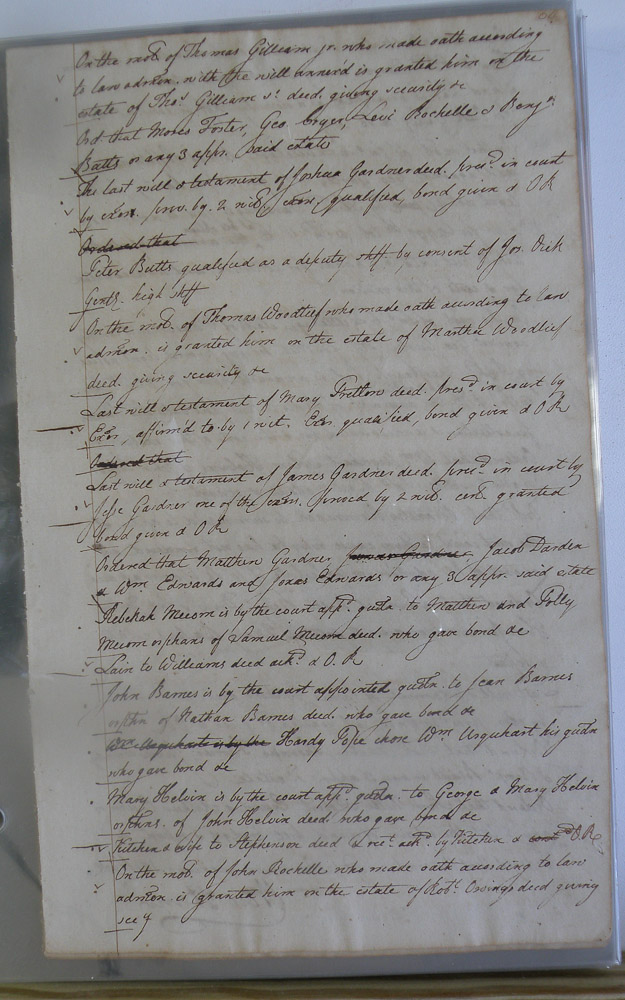 On the mot. of Thomas Gilliam jr. who made oath according
to law admon. with the will annex'd is granted him on the
estate of Thos. Gilliam sr. deed. giving security &c
Ord that Moses Foster, Geo. Cryer, Levi Rochelle & Benjn
Batts or any 3 appr. said estate
The last will & testament of Joshua Gardner deed. presd. in court
by exor. prov. by. 2 wits. exor. qualified, bond given & O R
Ordered that
Peter Butts qualified as a deputy shff. by consent of Jos. Dick
Gentl. high shff
On the mot. of Thomas Woodlief who made oath according to law
admon. is granted him on the estate of Martha Woodlief
deed. giving security &c
Last will & testament of Mary Fretton deed. presd. in court by
Exor, affirm'd to by 1 wit. Exr. qualified, bond given & O R
Ordered that
Last will & testament of James Gardner deed. presd. in court by
Jesse Gardner one of the exors. proved by 2 wits. cert. granted
bond given & O R
Ordered that Matthew Gardner James Gardner, Jacob Darden
& Wm. Edwards and Jonas Edwards or any 3 appr. said estate
Rebekah Mecom is by the court appt. gudn. to Matthew and Polly
Mecom orphans of Samuel Mecom deed. who gave bond &c
Lain to Williams deed ackd. & O. R
John Barnes is by the court appointed gudn. to Jean Barnes
orphn of Nathan Barnes deed. who gave bond &c
Wm. Urquhart is by the Hardy Pope chose Wm. Urquhart his gudn
who gave bond &c
Mary Helvin is by the court appt. gudn. to George & Mary Helvin
orphns. of John Helvin deed who gave bond &c
Kitchen & wife to Stephenson deed & rect. ack. by Kitchen & O R
On the mot. of John Rochelle who made oath according to law
admon. is granted him on the estate of Robt. Owings deed giving
secy